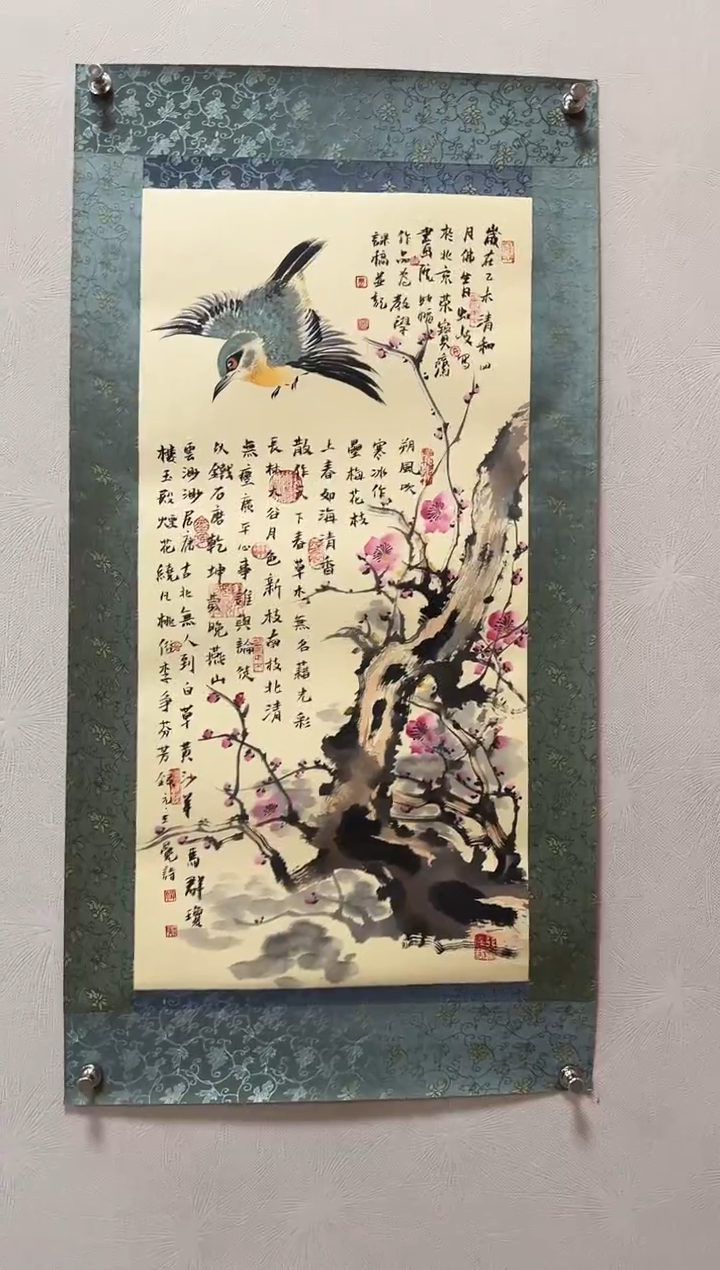 歲在乙未清和四
月佛生日
於北京榮寶齋
畫院
作品為教學
課稿並記
朔風吹
寒冰作
壘梅花枝
上春如海清香
散作天下春草木無名藉光彩
長林大谷月色新枝南枝北清
無塵廣平心事誰與論徒
以鐵石磨乾坤歲晚燕山
雲渺渺居庸古北無人到白草黃沙羊馬群瓊
樓玉殿煙花繞凡桃俗李爭芬芳